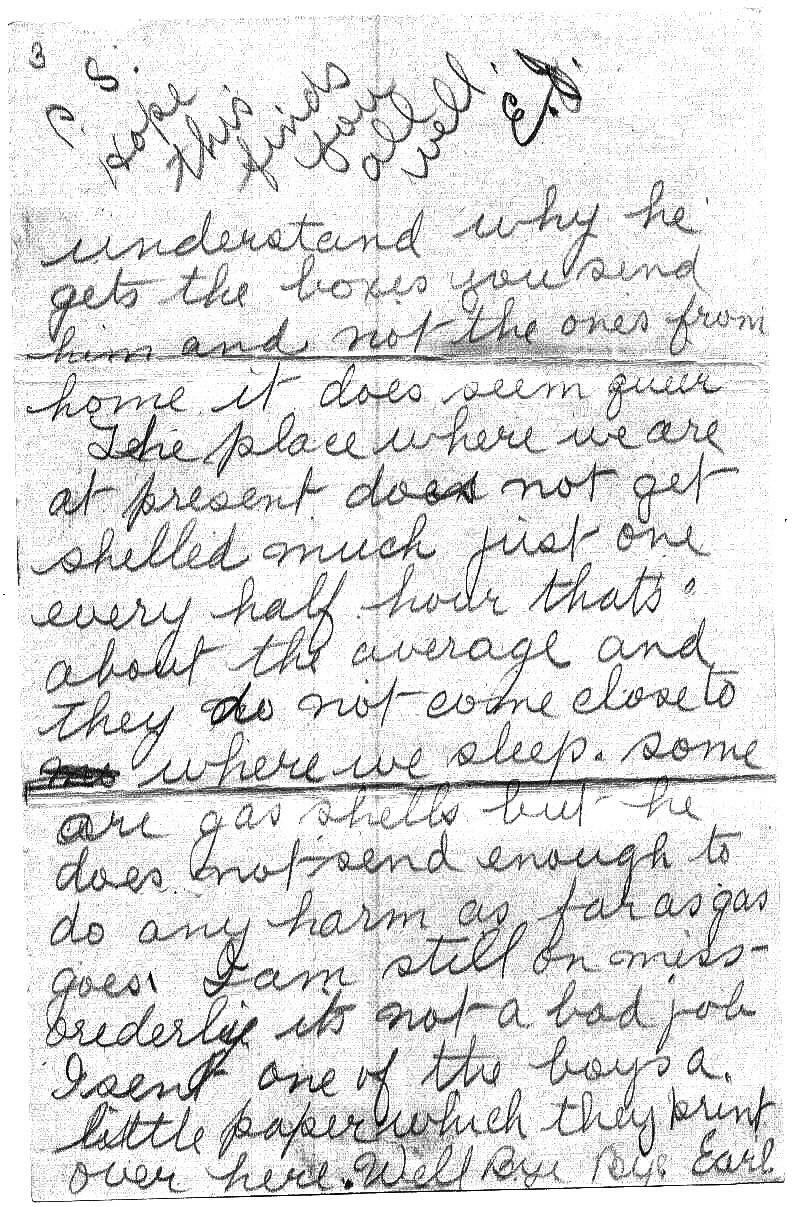 3
P. S.
Hope
this
finds
you
all
well.
understand why he
gets the boxes you send
him and not the ones from
home it does seem queer
The place where we are
at present does not get
shelled much just one
every half hour thats
about the average and
they do not come close to
where we sleep. some
are gas shells but he
does not send enough to
do any harm as far as gas
goes. I am still on mess-
orederly its not a bad job
I sent one of the boys a.
little paper which they print
over here. Well Bye Bye Earl